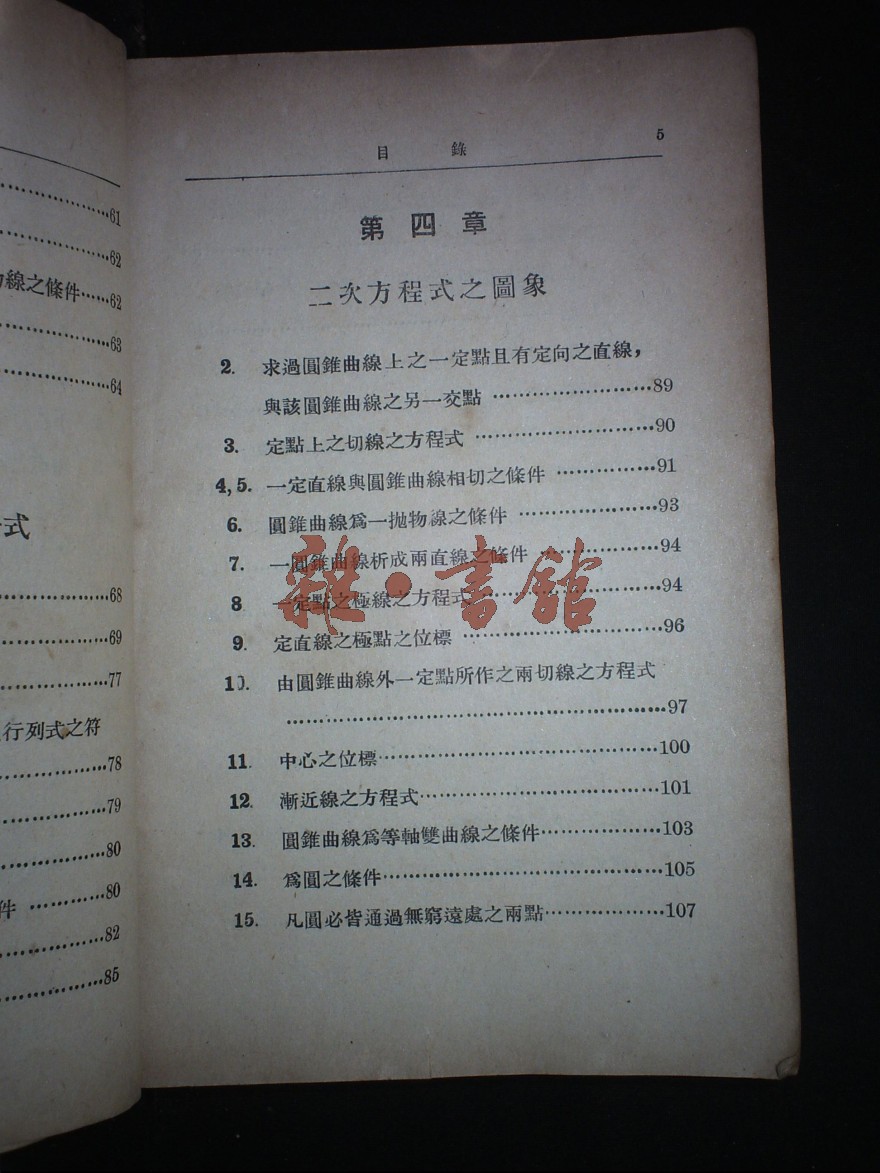 61
62
線之條件……62
63
64
式
68
69
77
行列式之符
78
79
80
件…………80
82
85
目錄 5
第四章
二次方程式之圖象
2. 求過圓錐曲線上之一定點且有定向之直線，
與該圓錐曲線之另一交點…………………………89
3. 定點上之切線之方程式…………………………90
4, 5. 一定直線與圓錐曲線相切之條件………………91
6. 圓錐曲線爲一拋物線之條件……………………93
7. 一圓錐曲線析成兩直線之條件…………………94
8 一定點之極線之方程式…………………………94
9. 定直線之極點之位標……………………………96
10. 由圓錐曲線外一定點所作之兩切線之方程式
……………………………………………………97
11. 中心之位標………………………………………100
12. 漸近線之方程式…………………………………101
13. 圓錐曲線爲等軸雙曲線之條件…………………103
14. 爲圓之條件………………………………………105
15. 凡圓必皆通過無窮遠處之兩點…………………107
雜·書館